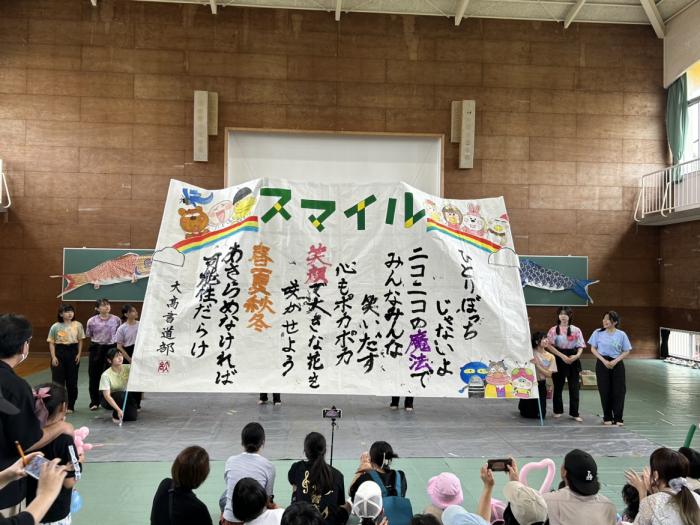 スマイル
ひとりぼっち
じゃないよ
ニコニコの魔法で
みんなみんな
笑いだす
心もポカポカ
笑顔で大きな花を
咲かせよう
春夏秋冬
あきらめなければ
可能性だらけ
大高書道部